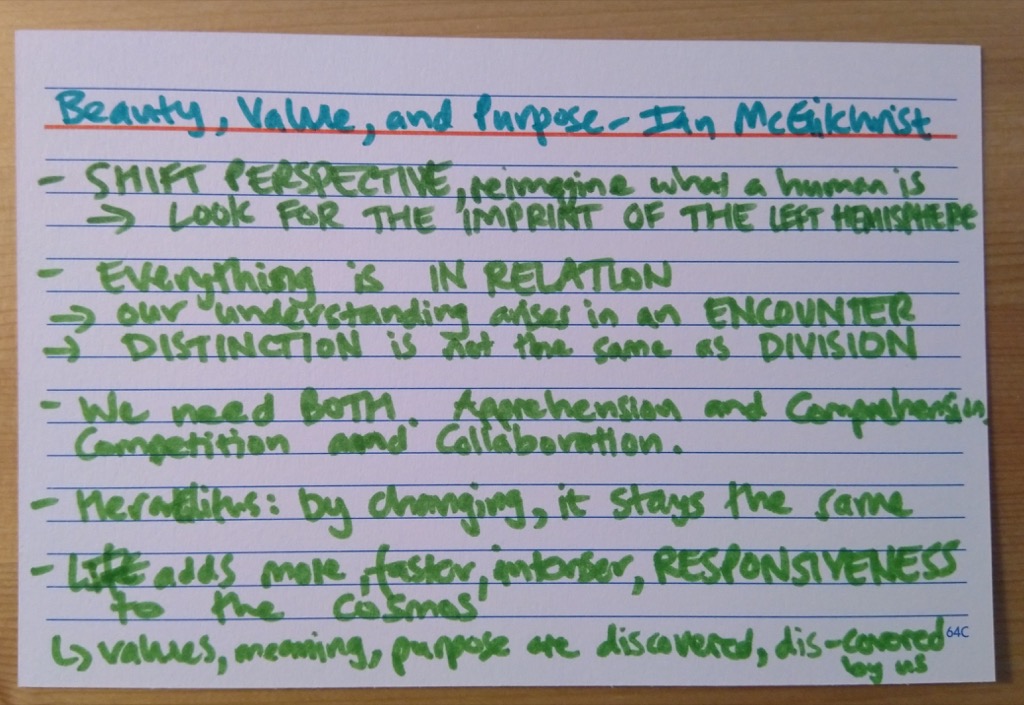 Beauty, Value, and Purpose - Ian McGilchrist
- SHIFT PERSPECTIVE, reimagine what a human is
→ LOOK FOR THE IMPRINT OF THE LEFT HEMISPHERE
- Everything is IN RELATION
→ our understanding arises in an ENCOUNTER
→ DISTINCTION is not the same as DIVISION
- We need BOTH. Apprehension and Comprehension,
Competition and Collaboration.
- Heraclitus: by changing, it stays the same
- Life adds more, faster, intenser, RESPONSIVENESS
to the cosmos
↳ values, meaning, purpose are discovered, dis-covered
by us
64C